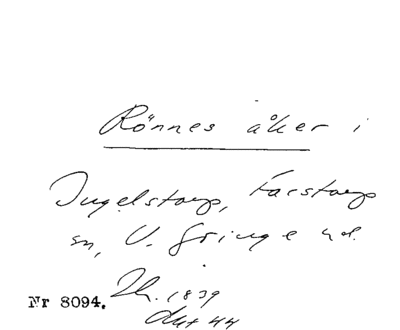 Rönnes åker i
Ingelstorp, Farstorp
sn, V. Göinge hd.
Nr 8094. Th. 1839
Akt 44